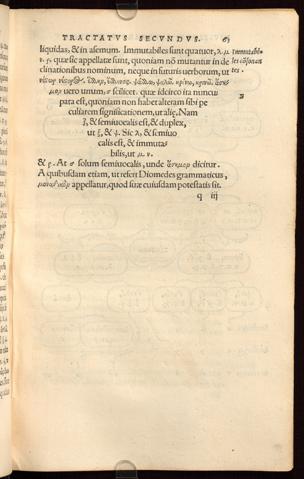 TRACTATVS SECVNDVS. 63
liquidas, & in asemum. Immutabiles sunt quatuor, λ. μ.
ν. ρ. quæ sic appellatæ sunt, quoniam nō mutantur in de
clinationibus nominum, neque in futuris uerborum, ut
vero unum, σ scilicet. quæ idcirco ita nuncu
pata est, quoniam non habet alteram sibi pe
culiarem significationem, ut aliæ. Nam
ζ, & semiuocalis est, & duplex,
ut ξ, & ψ. Sic λ, & semiuo
calis est, & immuta
bilis, ut μ. ν.
& ρ. At σ solum semiuocalis, unde ἄσημον dicitur.
A quibusdam etiam, ut refert Diomedes grammaticus,
appellatur, quod suæ cuiusdam potestatis sit.
q iij
Immutabi-
les cōsonan
tes.